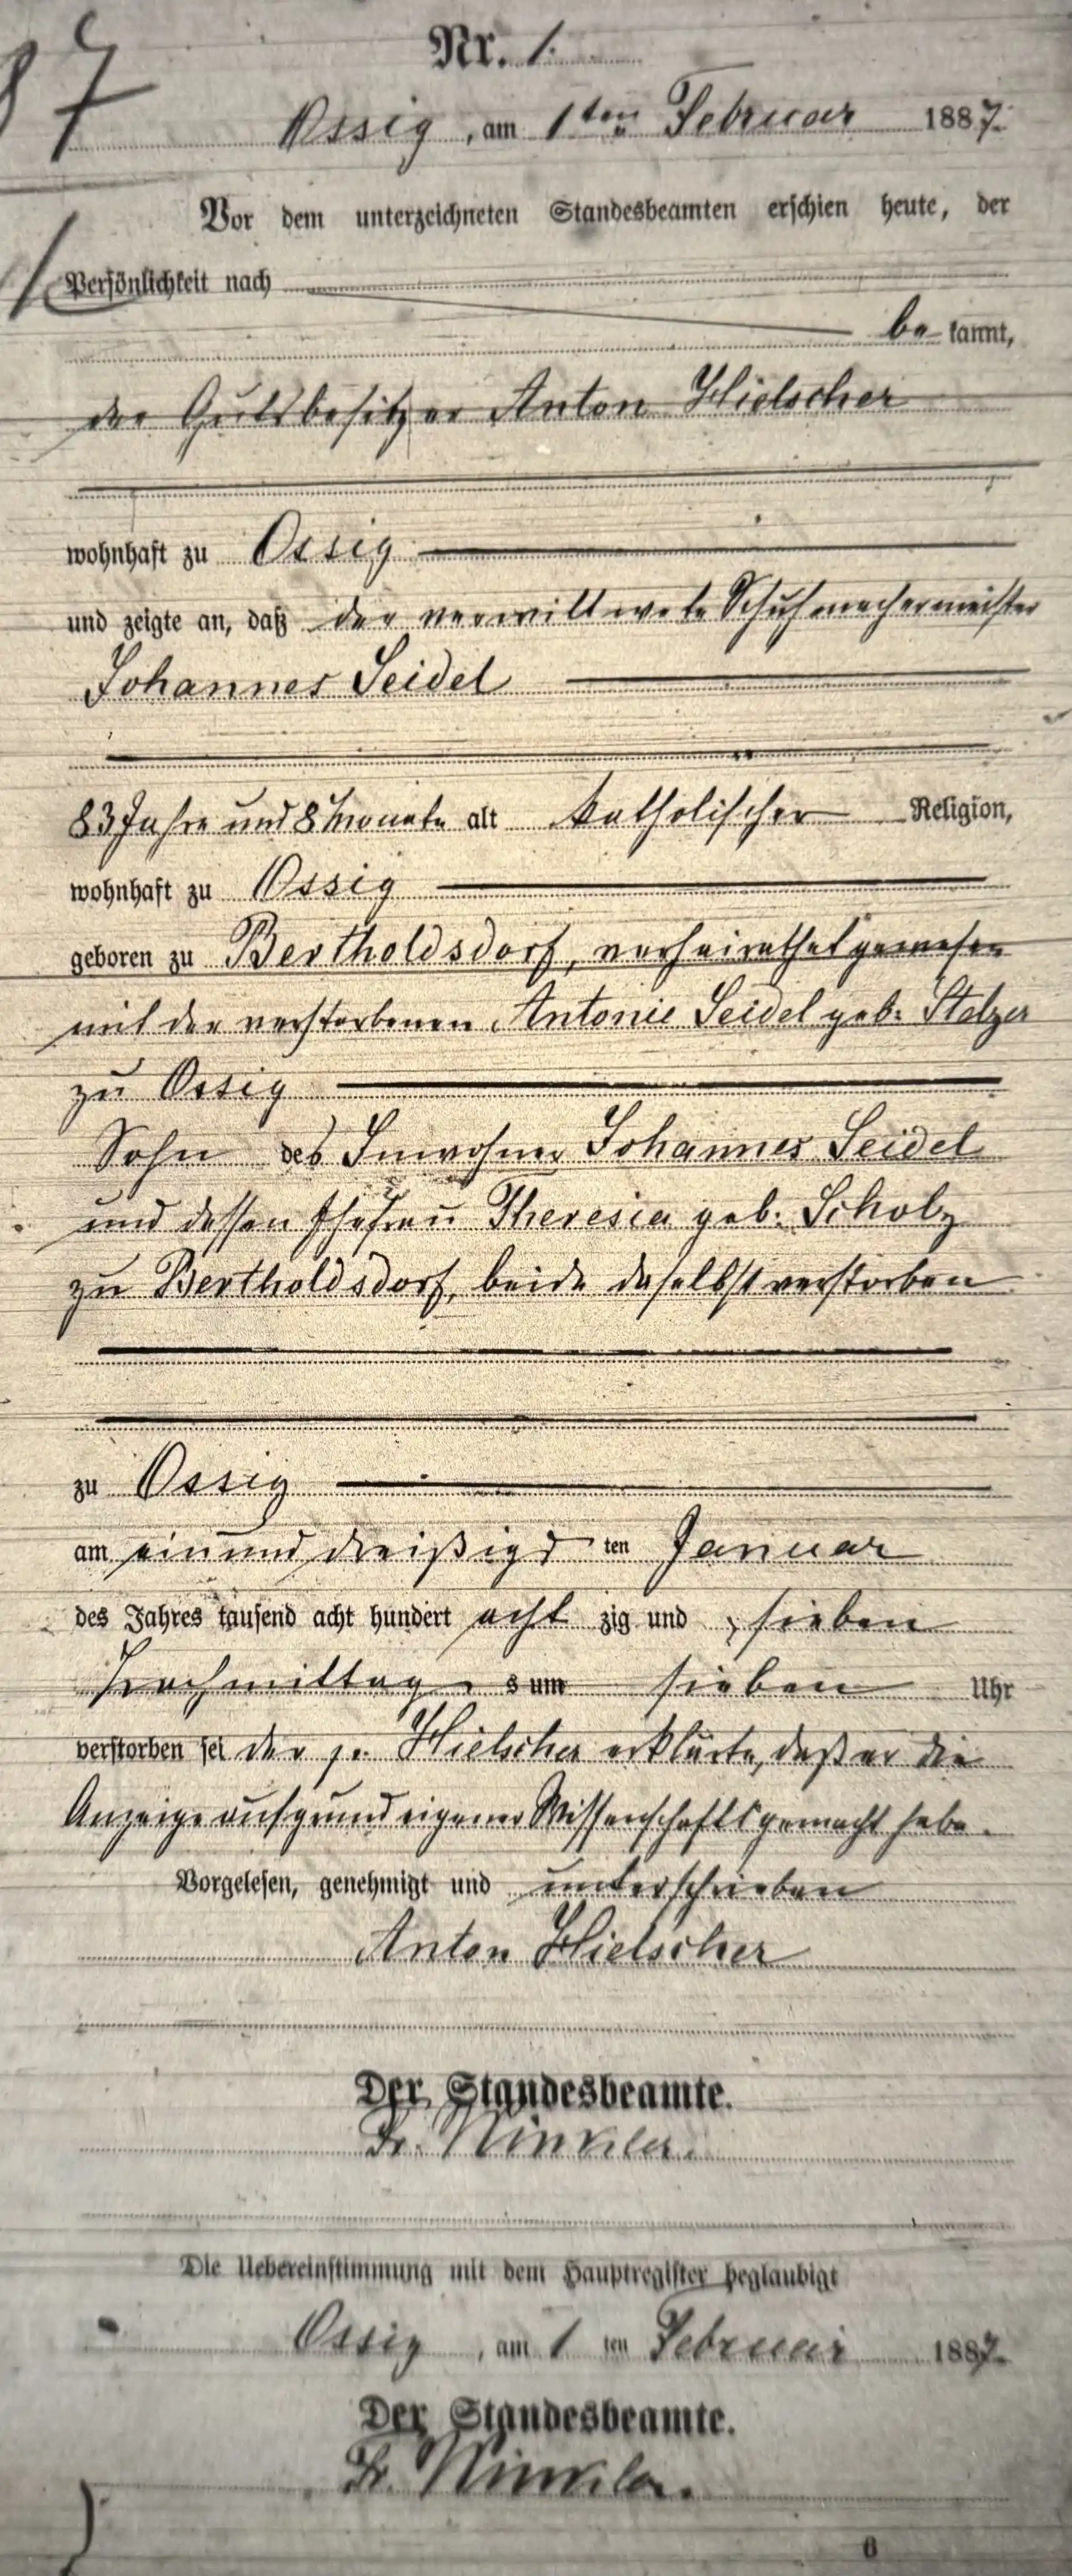 87
Nr. 1.
Ossig, am 1ten Februar 1887.
Vor dem unterzeichneten Standesbeamten erschien heute, der
Persönlichkeit nach
be kannt,
der Gutsbesitzer Anton Hielscher
wohnhaft zu Ossig
und zeigte an, daß der verwittwete Schuhmachermeister
Johannes Seidel
83 Jahre und 8 Monate alt katholischer Religion,
wohnhaft zu Ossig
geboren zu Bertholdsdorf, verheirathet gewesen
mit der verstorbenen Antonie Seidel geb. Stelzer
zu Ossig
Sohn des Inwohner Johannes Seidel
und dessen Ehefrau Theresia geb. Scholz
zu Bertholdsdorf, beide daselbst verstorben
zu Ossig
am einunddreißigs ten Januar
des Jahres tausend acht hundert acht zig und sieben
Nachmittag s um sieben Uhr
verstorben sei der p. Hielscher erklärte, daß er die
Anzeige aufgrund eigener Wissenschaft gemacht habe.
Vorgelesen, genehmigt und unterschrieben
Anton Hielscher
Der Standesbeamte.
Fr. Winkler.
Die Uebereinstimmung mit dem Hauptregister beglaubigt
Ossig, am 1 ten Februar 1887.
Der Standesbeamte.
Fr. Winkler.
6